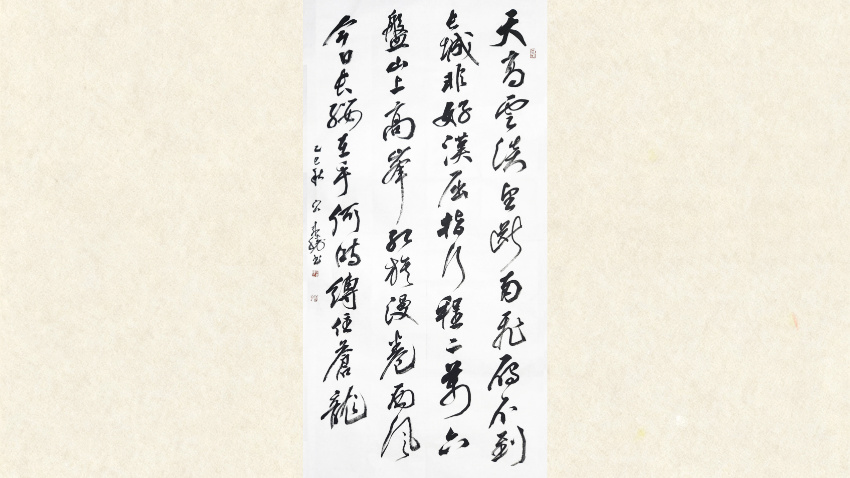 天高雲淡望斷南飛雁不到
長城非好漢屈指行程二萬六
盤山上高峯紅旗漫卷西風
今日長纓在手何時縛住蒼龍
乙巳秋 書